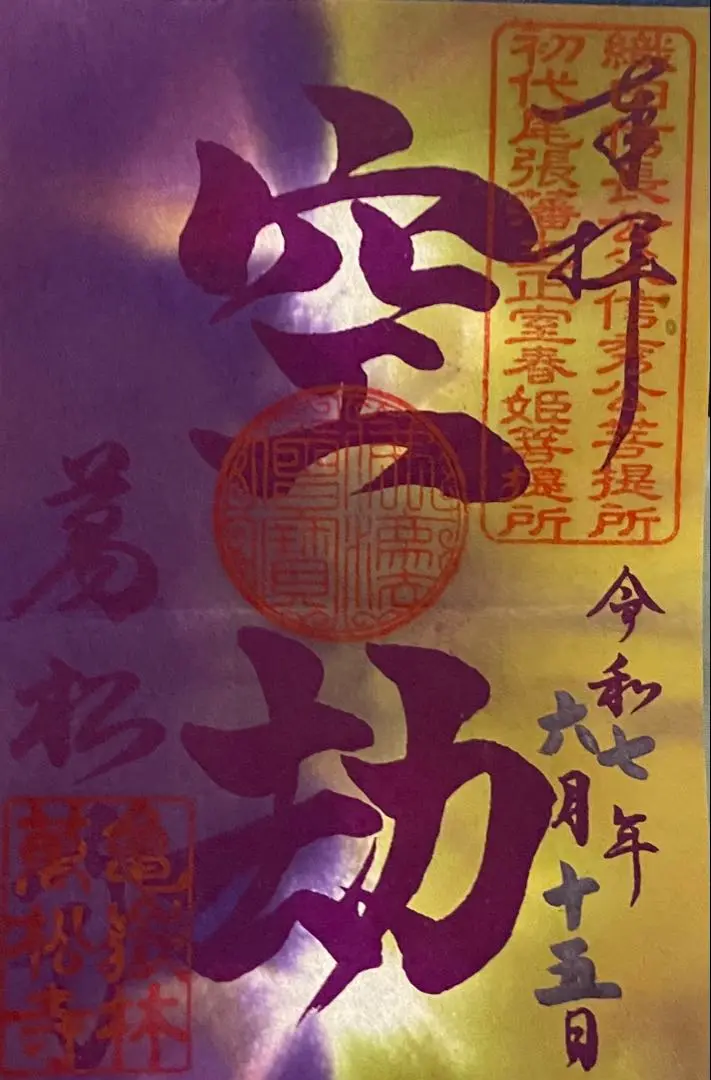 奉拝
織田信長公父信秀公菩提所
初代尾張藩主正室春姫菩提所
令和七年
六月十五日
空劫
佛法僧寶
萬松寺
亀嶽林
萬松寺